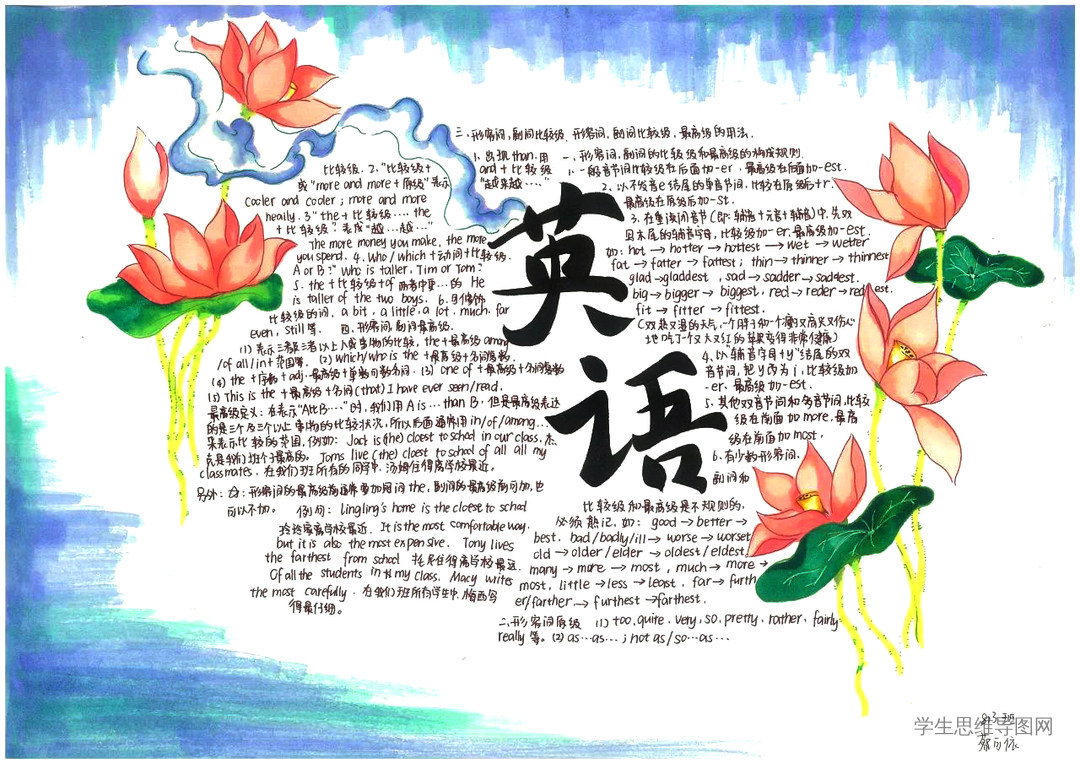 一、形容词,副词的比较级和最高级的构成规则.
1、一般音节词比较级在后面加-er,最高级在后面加-est.
2、以不发音e结尾的单音节词,比较在原级后+r.
最高级在原级后加-st.
3、在重读闭音节(即:辅音+元音+辅音)中,先双
写末尾的辅音字母,比较级加-er.最高级加-est.
如:hot → hotter → hottest → wet → wetter
fat → fatter → fattest; thin → thinner → thinnest
glad → gladdest , sad → sadder → saddest.
big → bigger → biggest, red → reder → reddest.
fit → fitter → fittest.
(双热又湿的天气,一个胖子和一个瘦又高兴又伤心
地吃了个又大又红的苹果变得非常健康)
4、以“辅音字母+y”结尾的双
音节词,把y改为i,比较级加
-er.最高级加-est.
5、其他双音节词和多音节词,比较
级在前面加more,最高
级在前面加most.
6、有少数形容词,
副词和
比较级和最高级是不规则的,
必须熟记,如: good → better →
best. bad/badly/ill → worse → worset
old → older/elder → oldest/eldest.
many → more → most , much → more →
most, little → less → least. far → furth
er/farther → furthest → farthest.
二、形容词原级 (1) too, quite, very, so, pretty, rather, fairly
really 等。(2) as…as… ; not as/so…as…
三、形容词,副词比较级 形容词,副词比较级,最高级的用法.
1、出现than.用
and + 比较级
“越来越….”
比较级. 2.“比较级+
或“more and more + 原级”表示
cooler and cooler ; more and more
heaily. 3“the + 比较级…. the
+ 比较级”.表成“越…越…”
The more money you make, the more
you spend. 4. Who / which + 动词 + 比较级.
A or B?” Who is taller, Tim or Tom?
5. the + 比较级 + of 两者中更…的 He
is taller of the two boys. 6. 可修饰
比较级的词, a bit, a little, a lot, much, far
even, still 等. 四、形容词,副词最高级.
(1) 表示三者及三者以上人或事物的比较, the + 最高级 among
/of all/in + 范围等. (2) which/who is the + 最高级 + 名词
(4) the + 序数 + adj.最高级 + 单数可数名词. (3) one of + 最高级 + 名词复数
(5) This is the + 最高级 + 名词 (that) I have ever seen/read.
最高级定义: 在表示“A比B….”时,我们用A is … than B, 但是最高级表达
的是三个及三个以上事物的比较状况,所以后面通常用in/of/among…
来表示比较的范围,例如: Jack is (the) cloest to school in our class,杰
克是我们班个子最高的. Toms live (the) cloest to school of all all my
classmates. 在我们班所有的同学中,汤姆住得离学校最近。
另外: 形容词的最高级前通常要加冠词the,副词的最高级前可加,也
可以不加。 例句: Lingling's home is the closest to school
玲玲家离学校最近. It is the most comfortable way.
but it is also the most expensive. Tony lives
the farthest from school 托尼住得离学校最远.
Of all the students in my class, Macy writes
the most carefully. 在我们班所有学生中,梅西写
得最仔细。
英
语
学生思维导图网